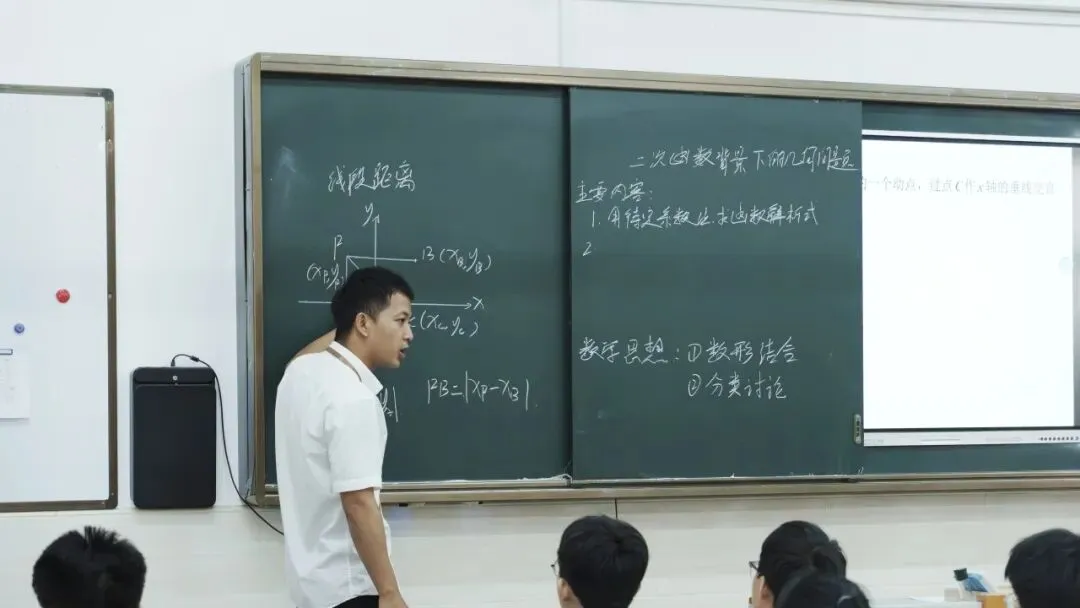 线段距离
y
P
B(xB,yB)
(xP,yP)
x
(xC,yC)
PB=|xP-xB|
二次函数背景下的几何问题
主要内容:
1.用待定系数法求函数解析式
2
数学思想:①数形结合
②分类讨论
的一个动点,过点C作x轴的垂线交直